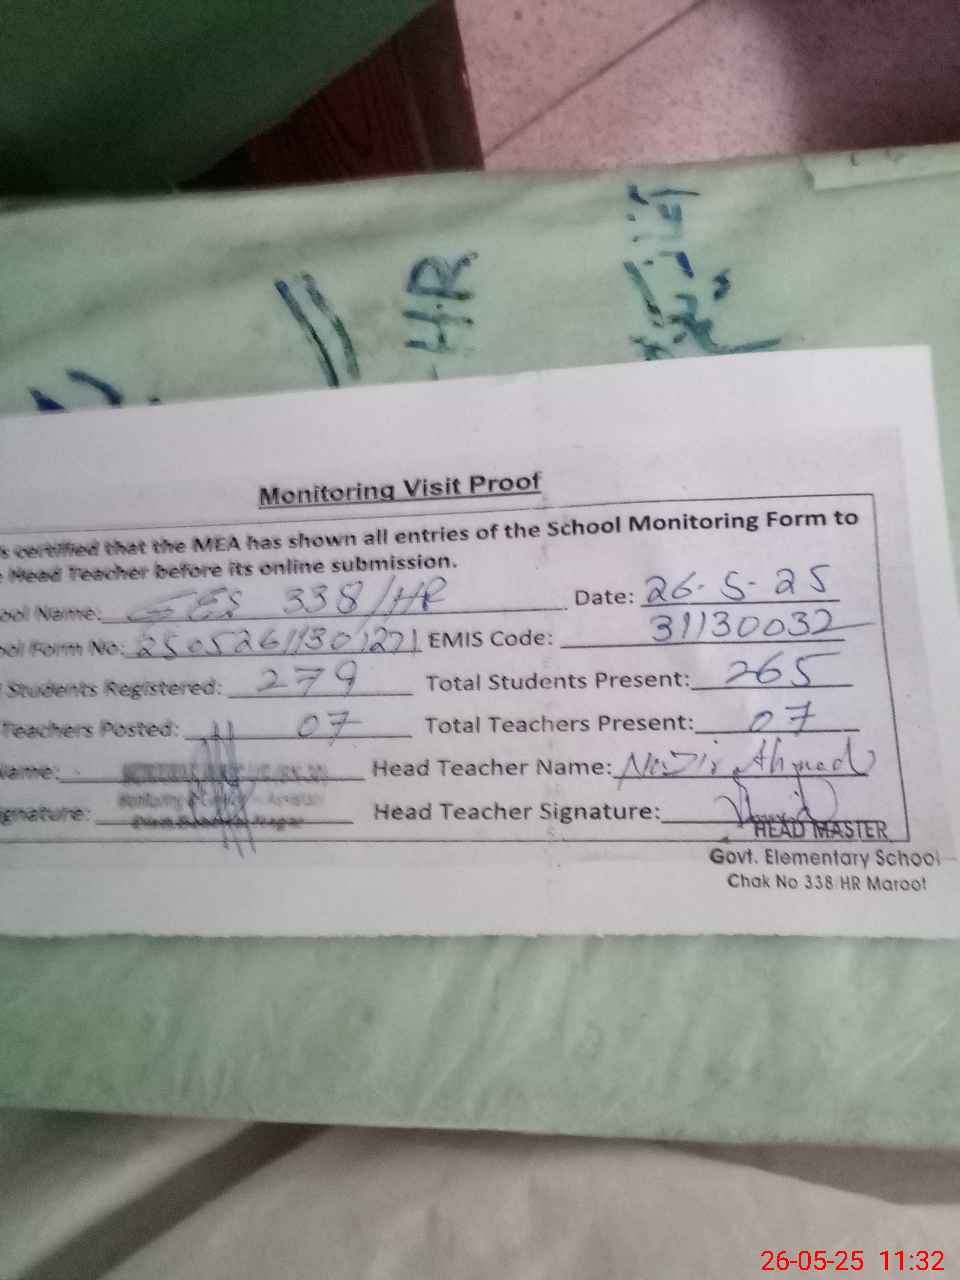 HR
Monitoring Visit Proof
certified that the MEA has shown all entries of the School Monitoring Form to
Head Teacher before its online submission.
ool Name: GES 338/HR Date: 26-5-25
ool Form No: 25052611301271 EMIS Code: 31130032
Students Registered: 279 Total Students Present: 265
Teachers Posted: 07 Total Teachers Present: 07
Name: Head Teacher Name: Nazir Ahmad
gnature: Head Teacher Signature:
HEAD MASTER
Govt. Elementary School
Chak No 338/HR Maroot
26-05-25 11:32